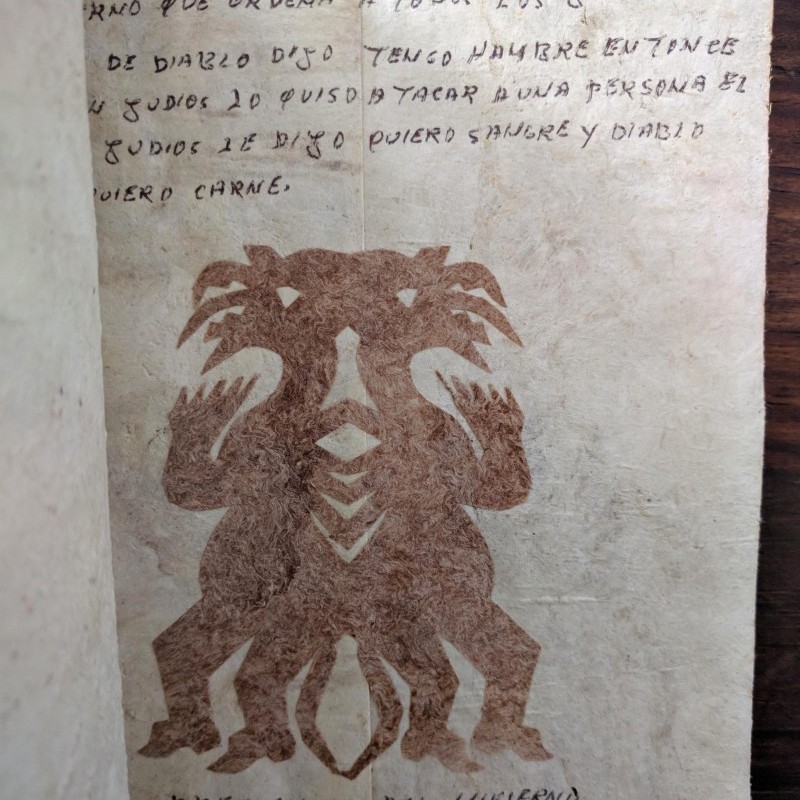 QUE ORDENA A TODOS LOS
DE DIABLO DIJO TENGO HAMBRE ENTONCE
JUDIOS LO QUISO ATACAR A UNA PERSONA EL
JUDIOS LE DIJO QUIERO SANGRE Y DIABLO
CARNE.
DEL INFIERNO